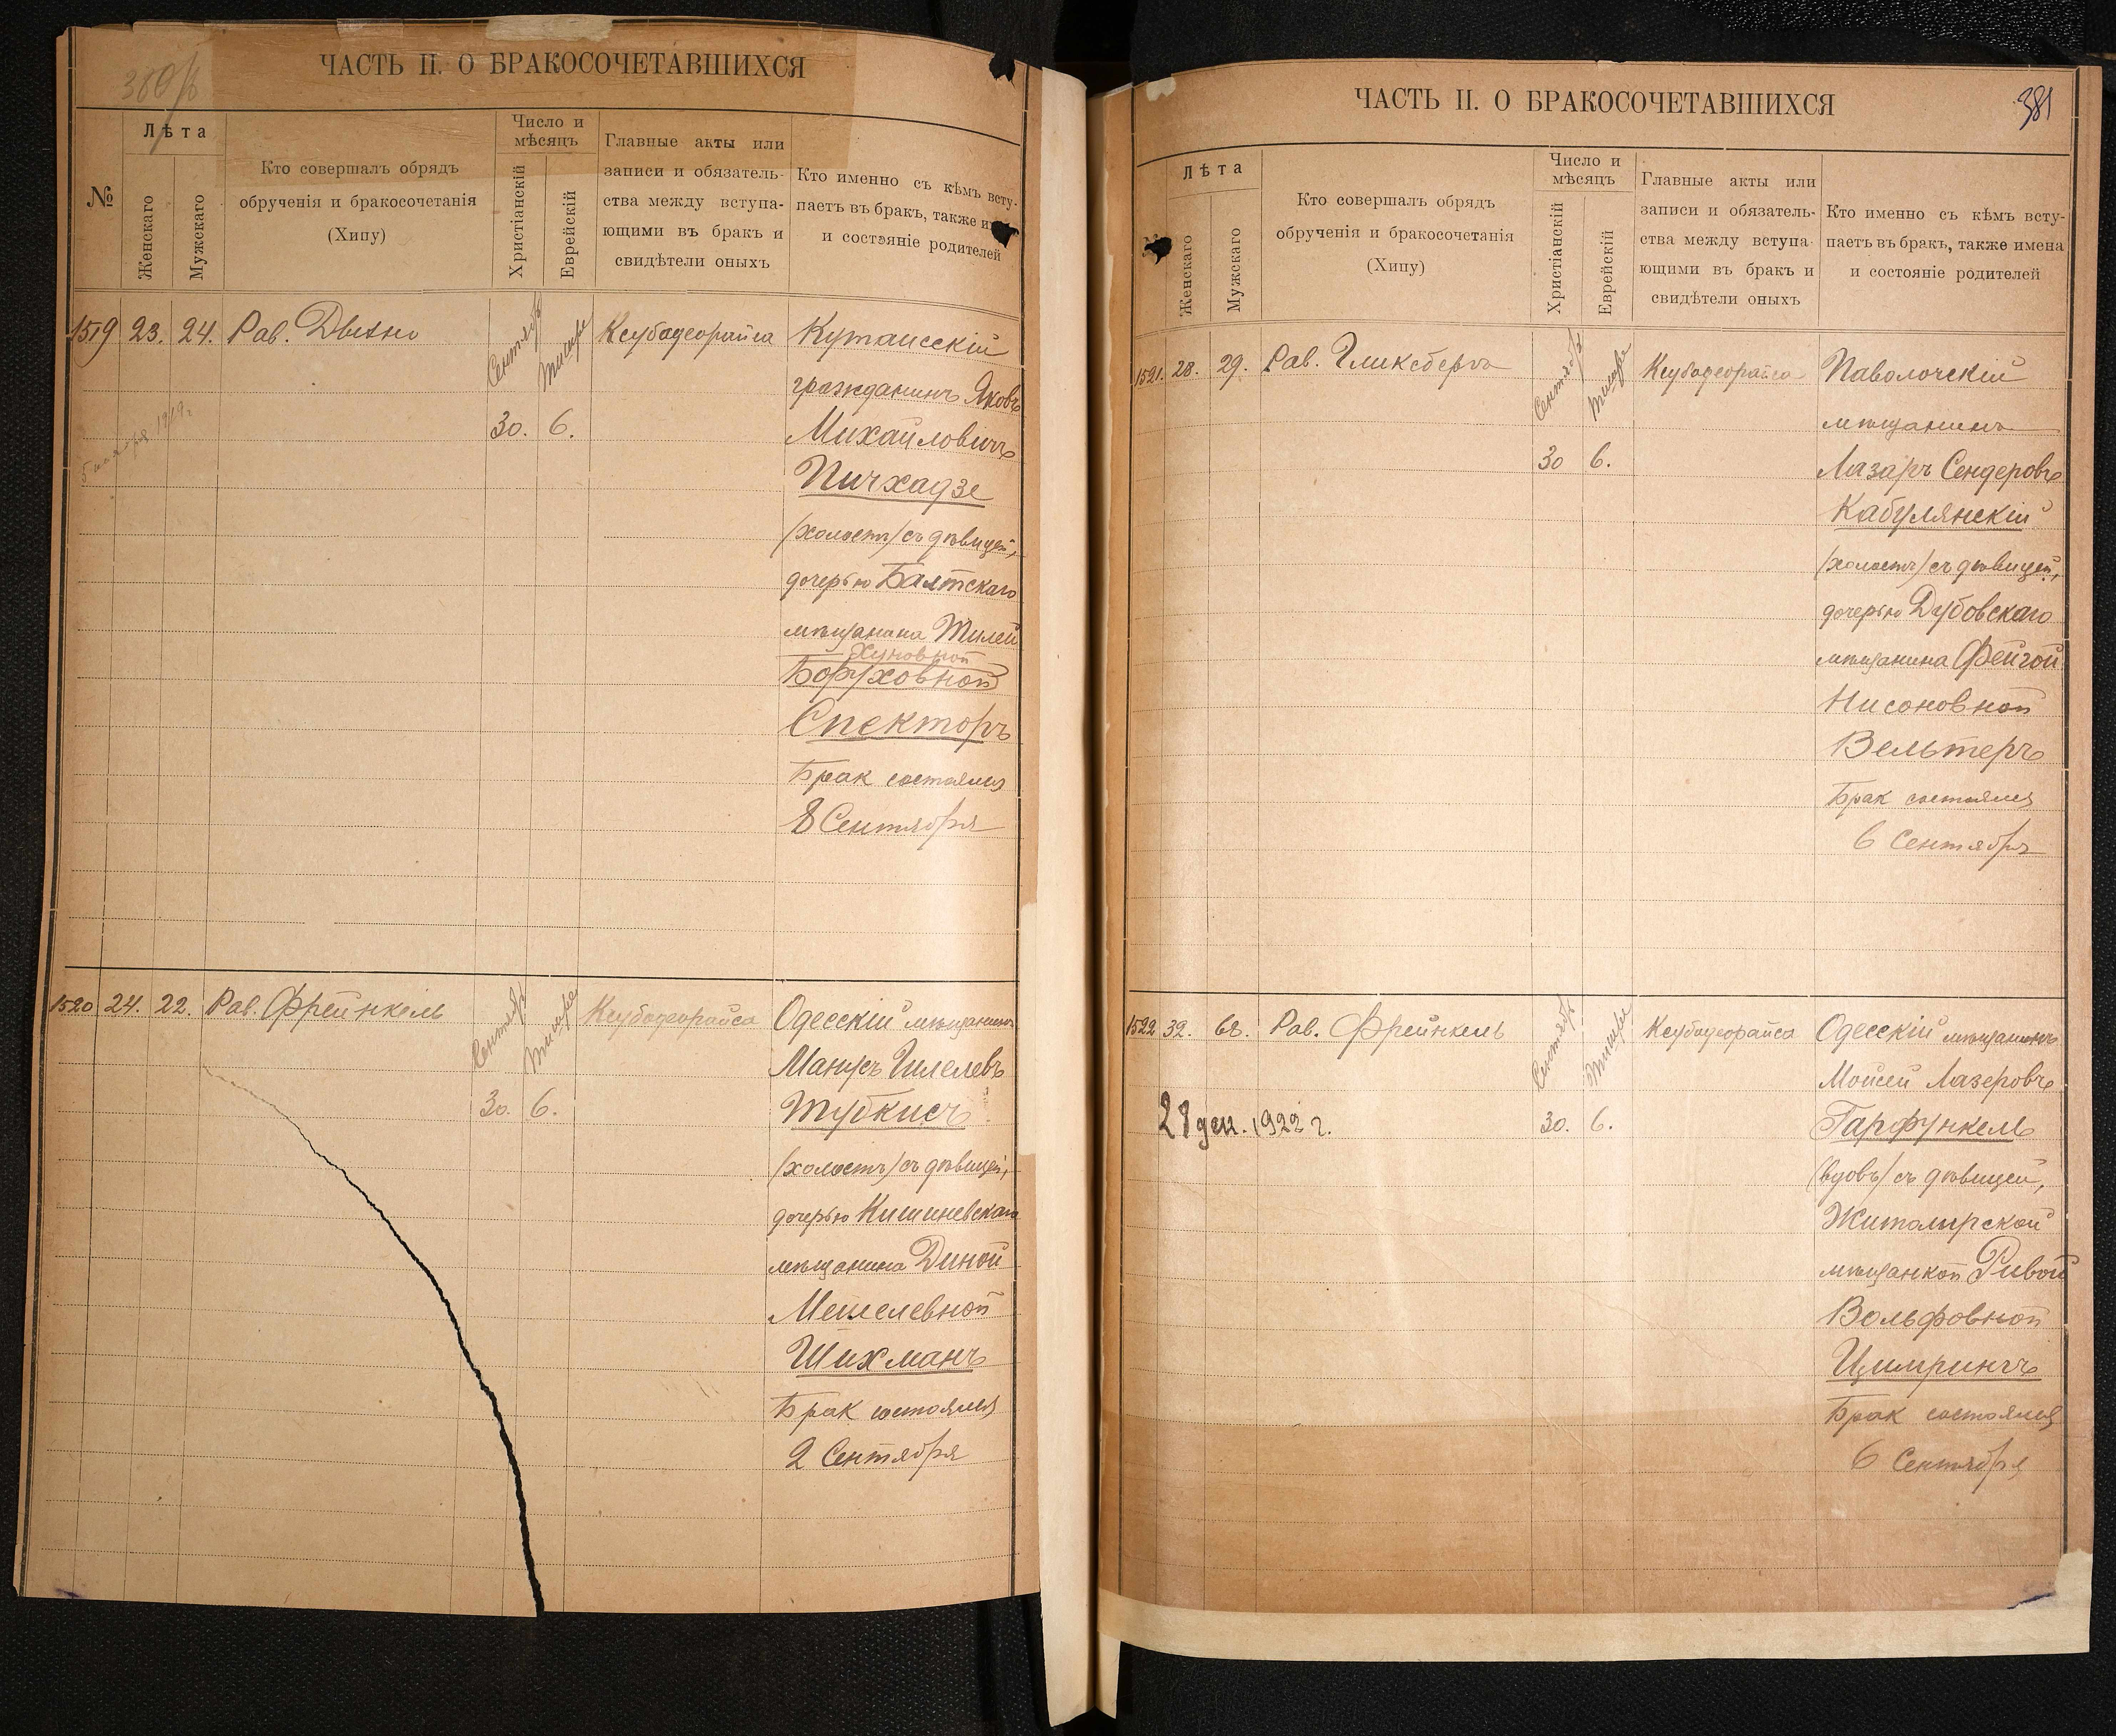 380/б
ЧАСТЬ II. О БРАКОСОЧЕТАВШИХСЯ
№
Лѣта
Женскаго
Мужскаго
Кто совершалъ обрядъ
обрученія и бракосочетанія
(Хипу)
Число и
мѣсяцъ
Христіанскій
Еврейскій
Главные акты или
записи и обязатель-
ства между вступа-
ющими въ бракъ и
свидѣтели оныхъ
Кто именно съ кѣмъ всту-
паетъ въ бракъ, также
и состояніе родителей
1519 23. 24. Рав.
Сентябрь
Тишре
30. 6.
Ксубадеорайса
Кутаисскій
гражданинъ Яковъ
Михайловичъ
Пичхадзе
(холостъ) съ дѣвицей,
дочерью Балтскаго
мѣщанина
Боруховной
Спекторъ
Брак состоялся
8 Сентября
1520 24. 22. Рав. Фрейнкель
Сентябрь
Тишре
30. 6.
Ксубадеорайса
Одесскій мѣщанинъ
Манусъ Гилелевъ
Тубкисъ
(холостъ) съ дѣвицей,
дочерью Кишиневскаго
мѣщанина Диной
Мейлевной
Шихманъ
Брак состоялся
2 Сентября
381
ЧАСТЬ II. О БРАКОСОЧЕТАВШИХСЯ
Лѣта
Женскаго
Мужскаго
Кто совершалъ обрядъ
обрученія и бракосочетанія
(Хипу)
Число и
мѣсяцъ
Христіанскій
Еврейскій
Главные акты или
записи и обязатель-
ства между вступа-
ющими въ бракъ и
свидѣтели оныхъ
Кто именно съ кѣмъ всту-
паетъ въ бракъ, также имена
и состояніе родителей
1521. 28. 29. Рав. Гликсбергъ
Сентябрь
Тишре
30 6.
Ксубадеорайса
Паволочскій
мѣщанинъ
Лазаръ Сендеровъ
Кабулянскій
(холостъ) съ дѣвицей,
дочерью Дубовскаго
мѣщанина Фейгой
Нисоновной
Вельтеръ
Брак состоялся
6 Сентября
1522 32. 68. Рав. Фрейнкель
Сентябрь
Тишре
30. 6.
28 дек. 1922 г.
Ксубадеорайса
Одесскій мѣщанинъ
Мойсей Лазеровъ
Гарфункель
(вдовъ) съ дѣвицей,
Житомирской
мѣщанкой Ривой
Вольфовной
Цимрингъ
Брак состоялся
6 Сентября